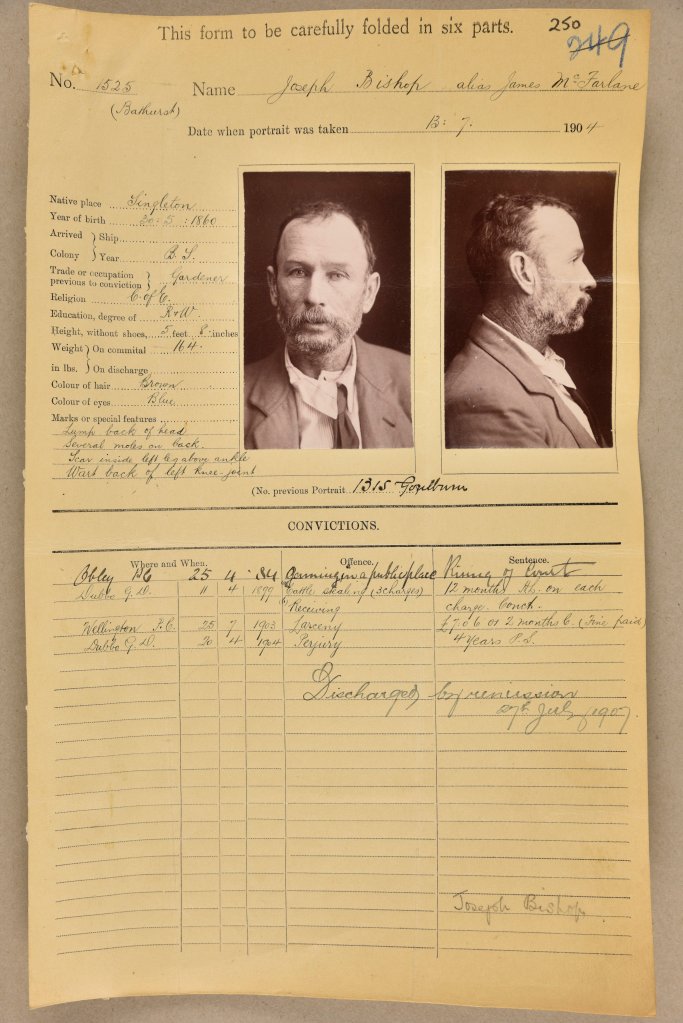 This form to be carefully folded in six parts.
250
349
No. 1525
(Bathurst)
Name Joseph Bishop alias James McFarlane
Date when portrait was taken 13: 7. 1904
Native place Singleton
Year of birth 30: 5: 1860
Arrived } Ship
Colony } Year B. S.
Trade or occupation previous to conviction } Gardener
Religion C. of E.
Education, degree of R & W
Height, without shoes, 5 feet 8 inches
Weight } On commital 164
in lbs. } On discharge
Colour of hair Brown
Colour of eyes Blue
Marks or special features
Lump back of head
Several moles on back.
Scar inside left leg above ankle
Wart back of left knee-joint
(No. previous Portrait 1315 Goulburn
CONVICTIONS.
Where and When. Offence. Sentence.
Obley P.C. 25 4 84 in a public place Rising of Court
Dubbo Q.S. 11 4 1899 Cattle stealing (3 charges) 12 months H.L. on each
Receiving charge. Conc.
Wellington P.C. 25 7 1903 Larceny £7.0.6 or 2 months (Fine paid)
Dubbo Q.S. 20 4 1904 Perjury 4 years P.S.
Discharged by remission
27th July 1907
Joseph Bishop.